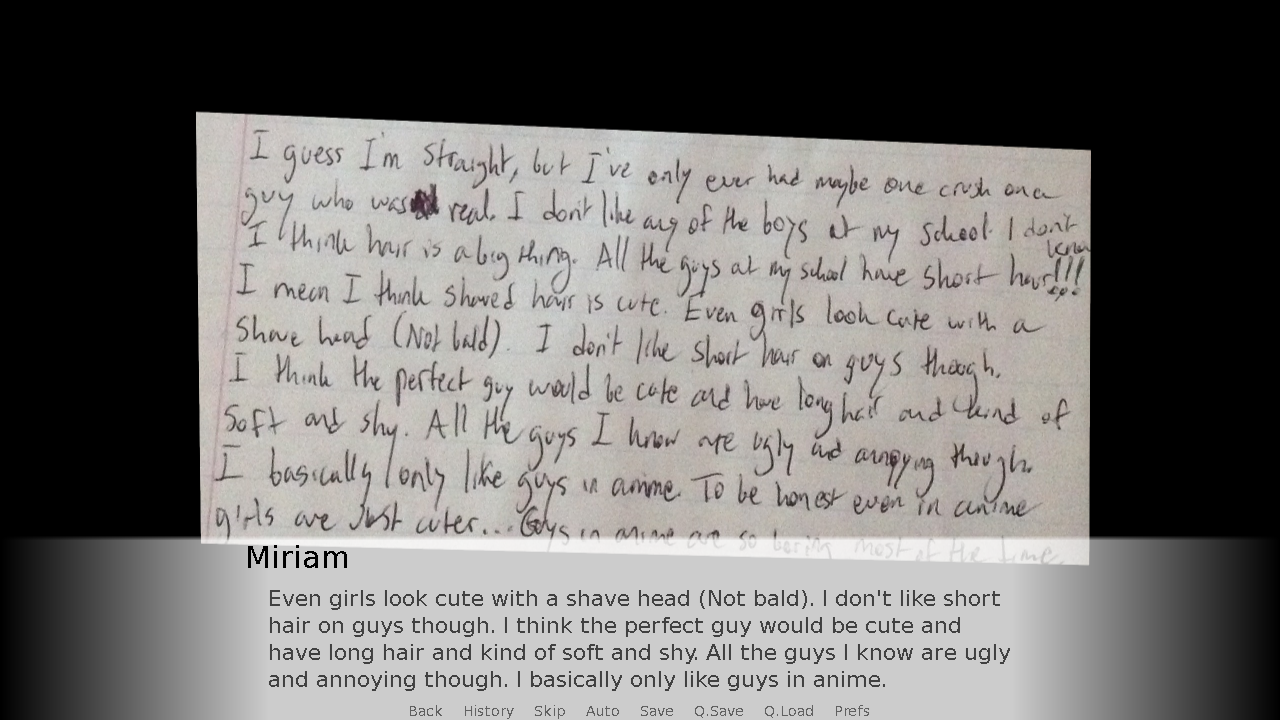 I guess I'm straight, but I've only ever had maybe one crush on a
guy who was real. I don't like any of the boys at my school. I don't
know
I think hair is a big thing. All the guys at my school have short hair!!!
I mean I think shaved hair is cute. Even girls look cute with a
shave head (Not bald). I don't like short hair on guys though.
I think the perfect guy would be cute and have long hair and kind of
soft and shy. All the guys I know are ugly and annoying though.
I basically only like guys in anime. To be honest even in anime
girls are just cuter... Guys in anime are so boring most of the time
Miriam
Even girls look cute with a shave head (Not bald). I don't like short
hair on guys though. I think the perfect guy would be cute and
have long hair and kind of soft and shy. All the guys I know are ugly
and annoying though. I basically only like guys in anime.
Back History Skip Auto Save Q.Save Q.Load Prefs